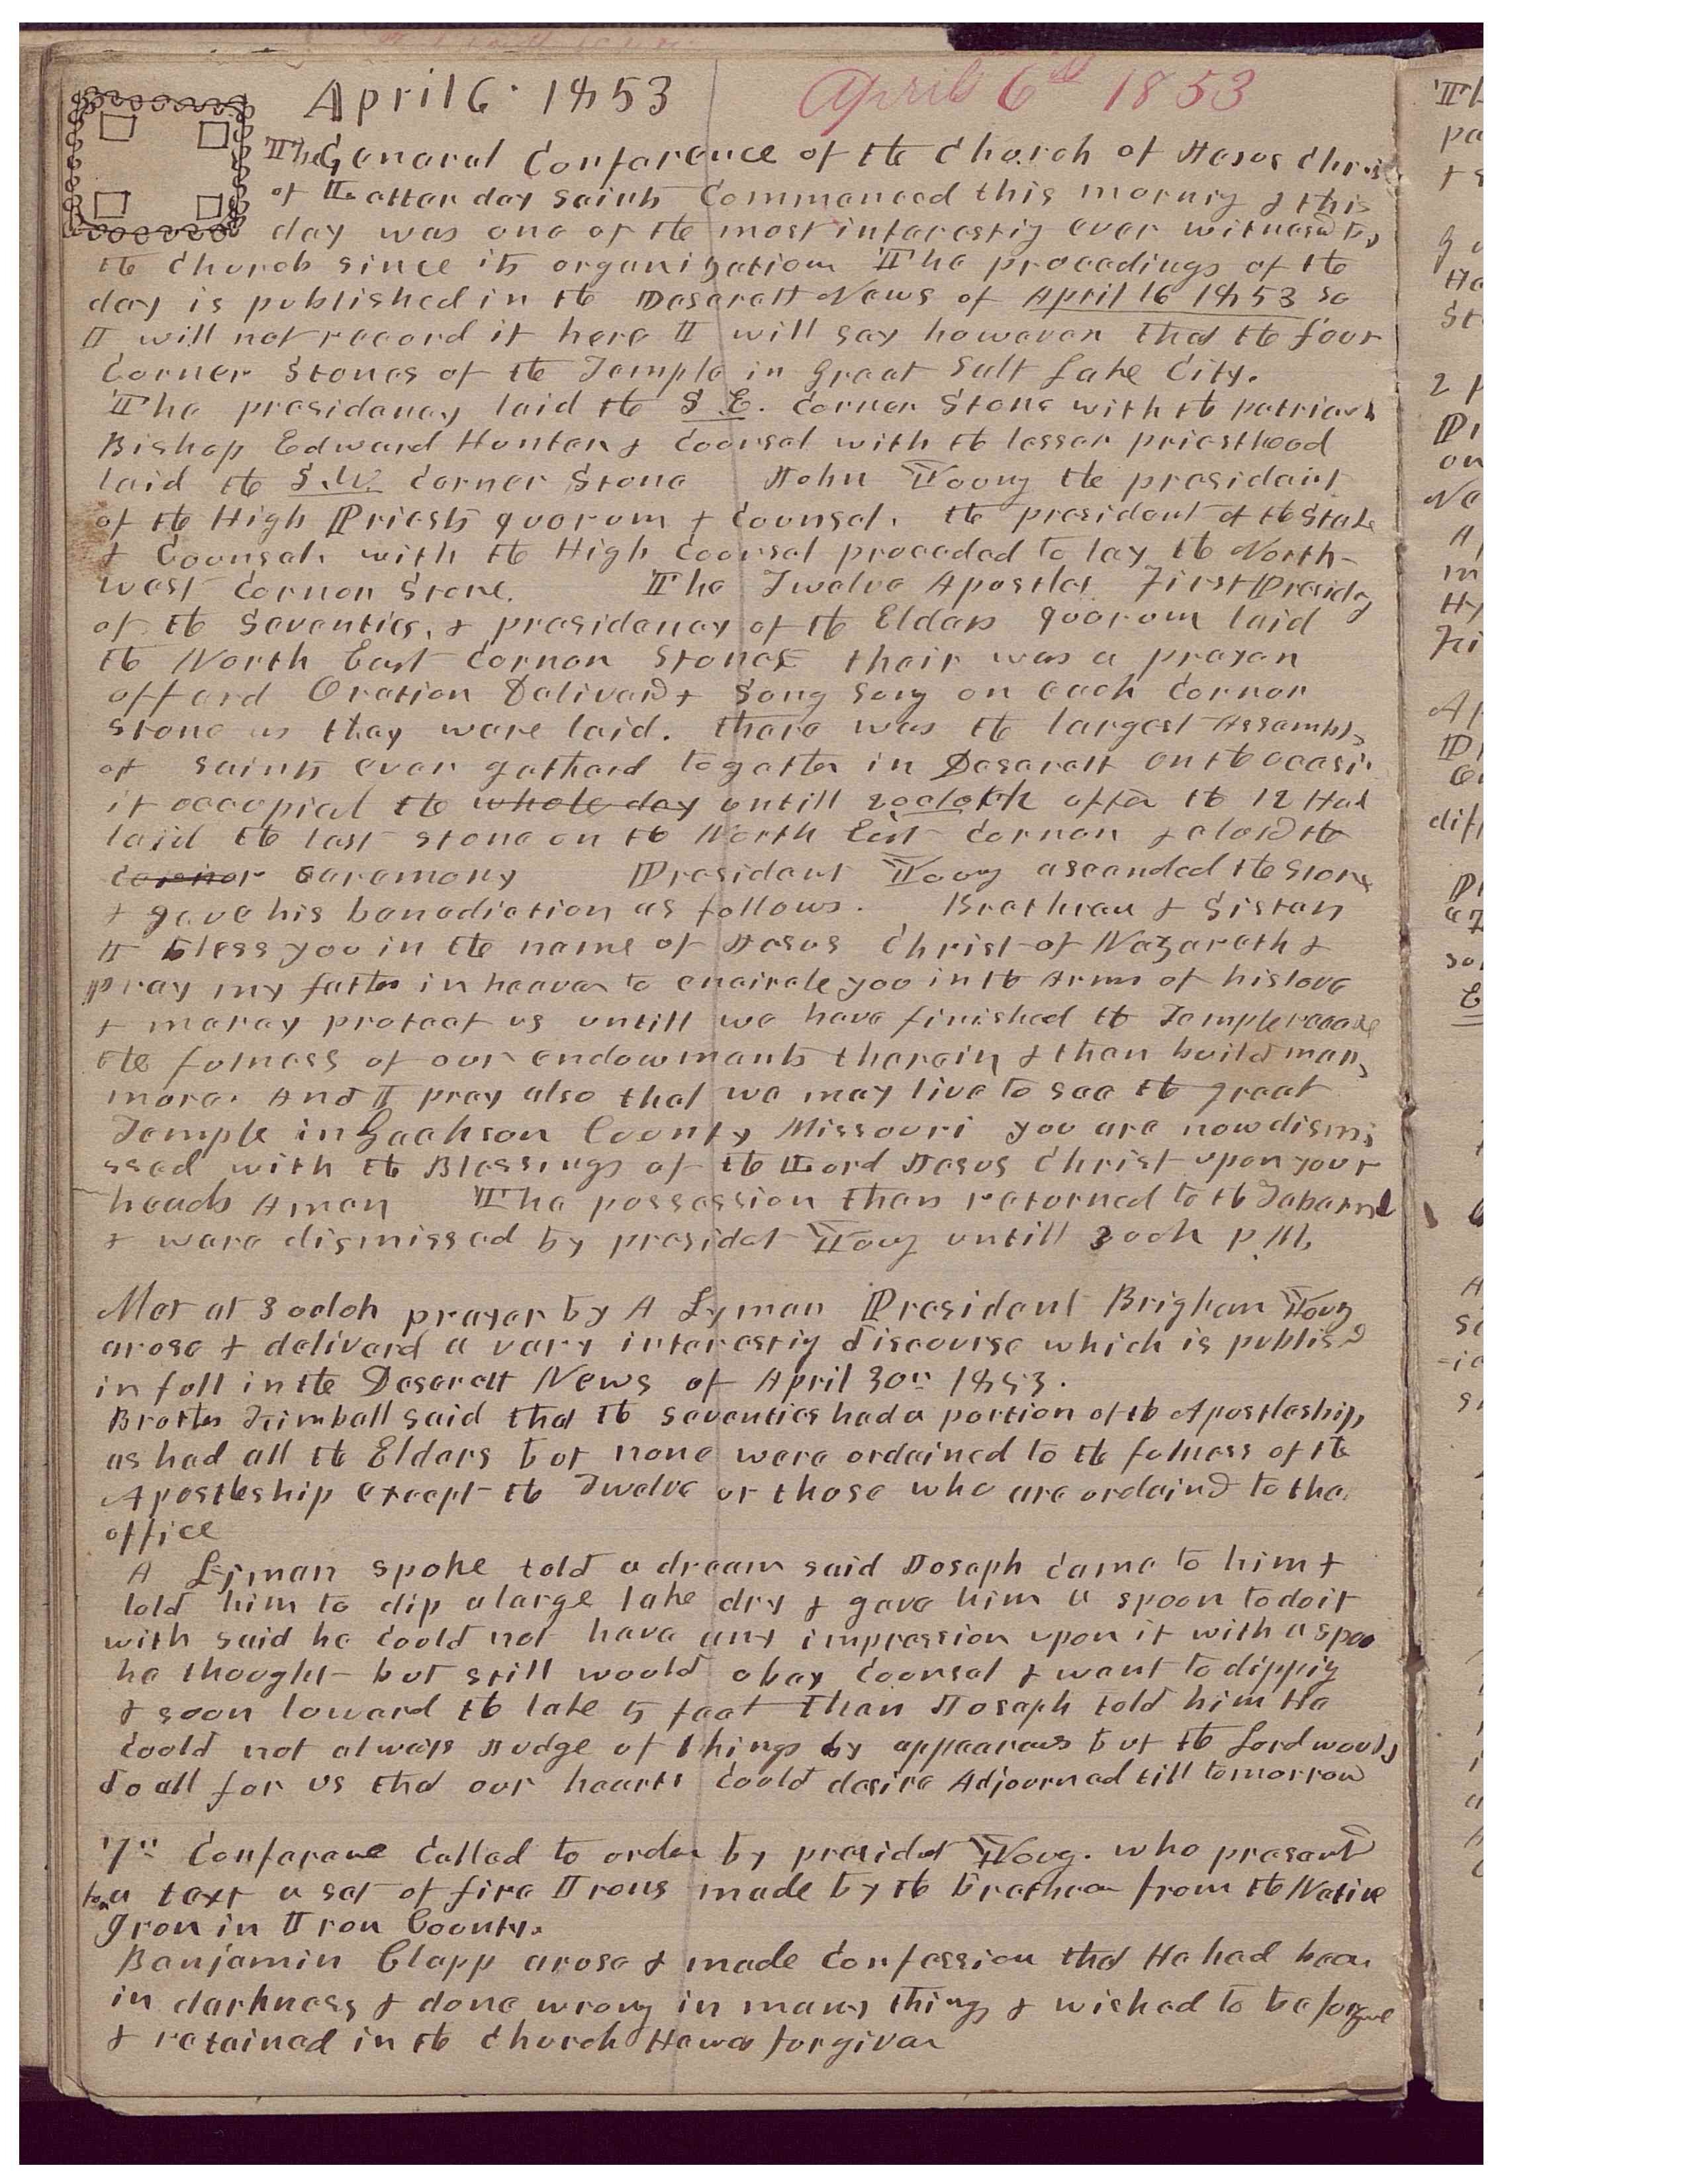 April 6th 1853
April 6th 1853
The General Conference of the Church of Jesus Christ
of Latter day saints commenced this mornig & this
day was one of the most interestig ever witnessd by
the Church since its organization The procedings of the
day is published in the Deserett News of April 16 1853 so
I will not record it here I will say however that the four
Corner Stones of the Temple in Great Salt Lake City.
The presidency laid the S E. Corner Stone with the patriarch
Bishop Edward Hunter & Counsel with the lesser priesthood
laid the S.W. Corner Stone John Young the president
of the High Priests quorum & Counsel. the president of the Stake
& Counsel. with the High Counsel proceded to lay the North-
west Corner Stone. The Twelve Apostles First Presidcy
of the Seventies, & presidency of the Elders quorum laid
the North East Corner Stone their was a prayer
offerd Oration Deliverd & Song Sung on each Corner
Stone as they were laid. there was the largest Assembly
of saints ever gatherd together in Deserett on the occasi
it occupied the whole day untill 2 oclock after the 12 Had
laid the last stone on the North East Corner & closed the
Corner ceremony President Young ascended the stone
& gave his benediction as follows. Brethren & Sisters
I bless you in the name of Jesus Christ of Nazareth &
pray my father in heaven to encircle you in the Arms of his love
& mercy protect us untill we have finished the Temple receive
the fulness of our endowments therein & then build many
more. And I pray also that we may live to see the great
Temple in Jackson County Missouri you are now dismi
ssed with the Blessings of the Lord Jesus Christ upon your
heads Amen The possession then returned to the Tabarnl
& were dismissed by presidet Young untill 3 ock p.M.
Met at 3 oclok prayer by A Lyman President Brigham Young
arose & deliverd a very interestig discourse which is publisd
in full in the Deserett News of April 30th 1853.
Brother Kimball said that the seventies had a portion of the Apostleship
as had all the Elders but none were ordained to the fulness of the
Apostleship except the Twelve or those who are ordaind to that
office
A Lyman spoke told a dream said Joseph came to him &
told him to dip a large lake dry & gave him a spoon to do it
with said he could not have any impression upon it with a spoo
he thought but still would obey Counsel & went to dippig
& soon lowerd the lake 5 feet then Joseph told him He
could not always Judge of things by appearaces but the Lord would
do all for us that our hearts could desire Adjourned till tomorrow
7th Conferance Called to order by presidet Young. who presentd
for a text a set of fire Irons made by the brethren from the Native
Iron in Iron County.
Benjamin Clapp arose & made Confession that He had been
in darkness & done wrong in many things & wished to be forgive
& retained in the Church He was forgiven